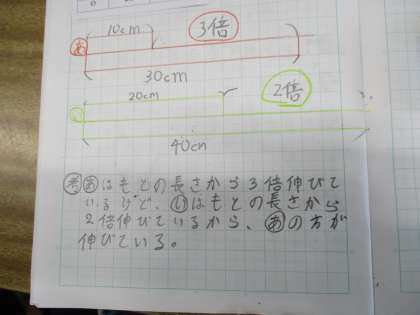 10cm 3倍
あ
30cm
20cm 2倍
い
40cm
考 あはもとの長さから3倍伸びて
いるけど、いはもとの長さから
2倍伸びているから、あの方が
伸びている。